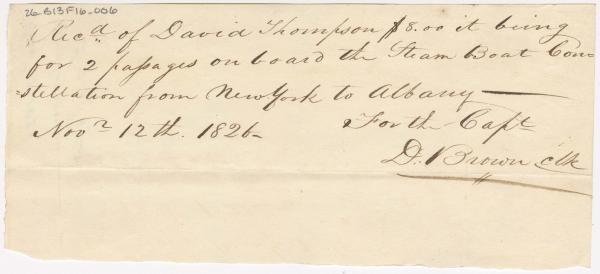 26-B13F16-006
Recd of David Thompson $8.00 it being
for 2 passages on board the Steam Boat Con=
=stellation from New York to Albany —
Novr 12th. 1826- For the Capt
D. Brown clk